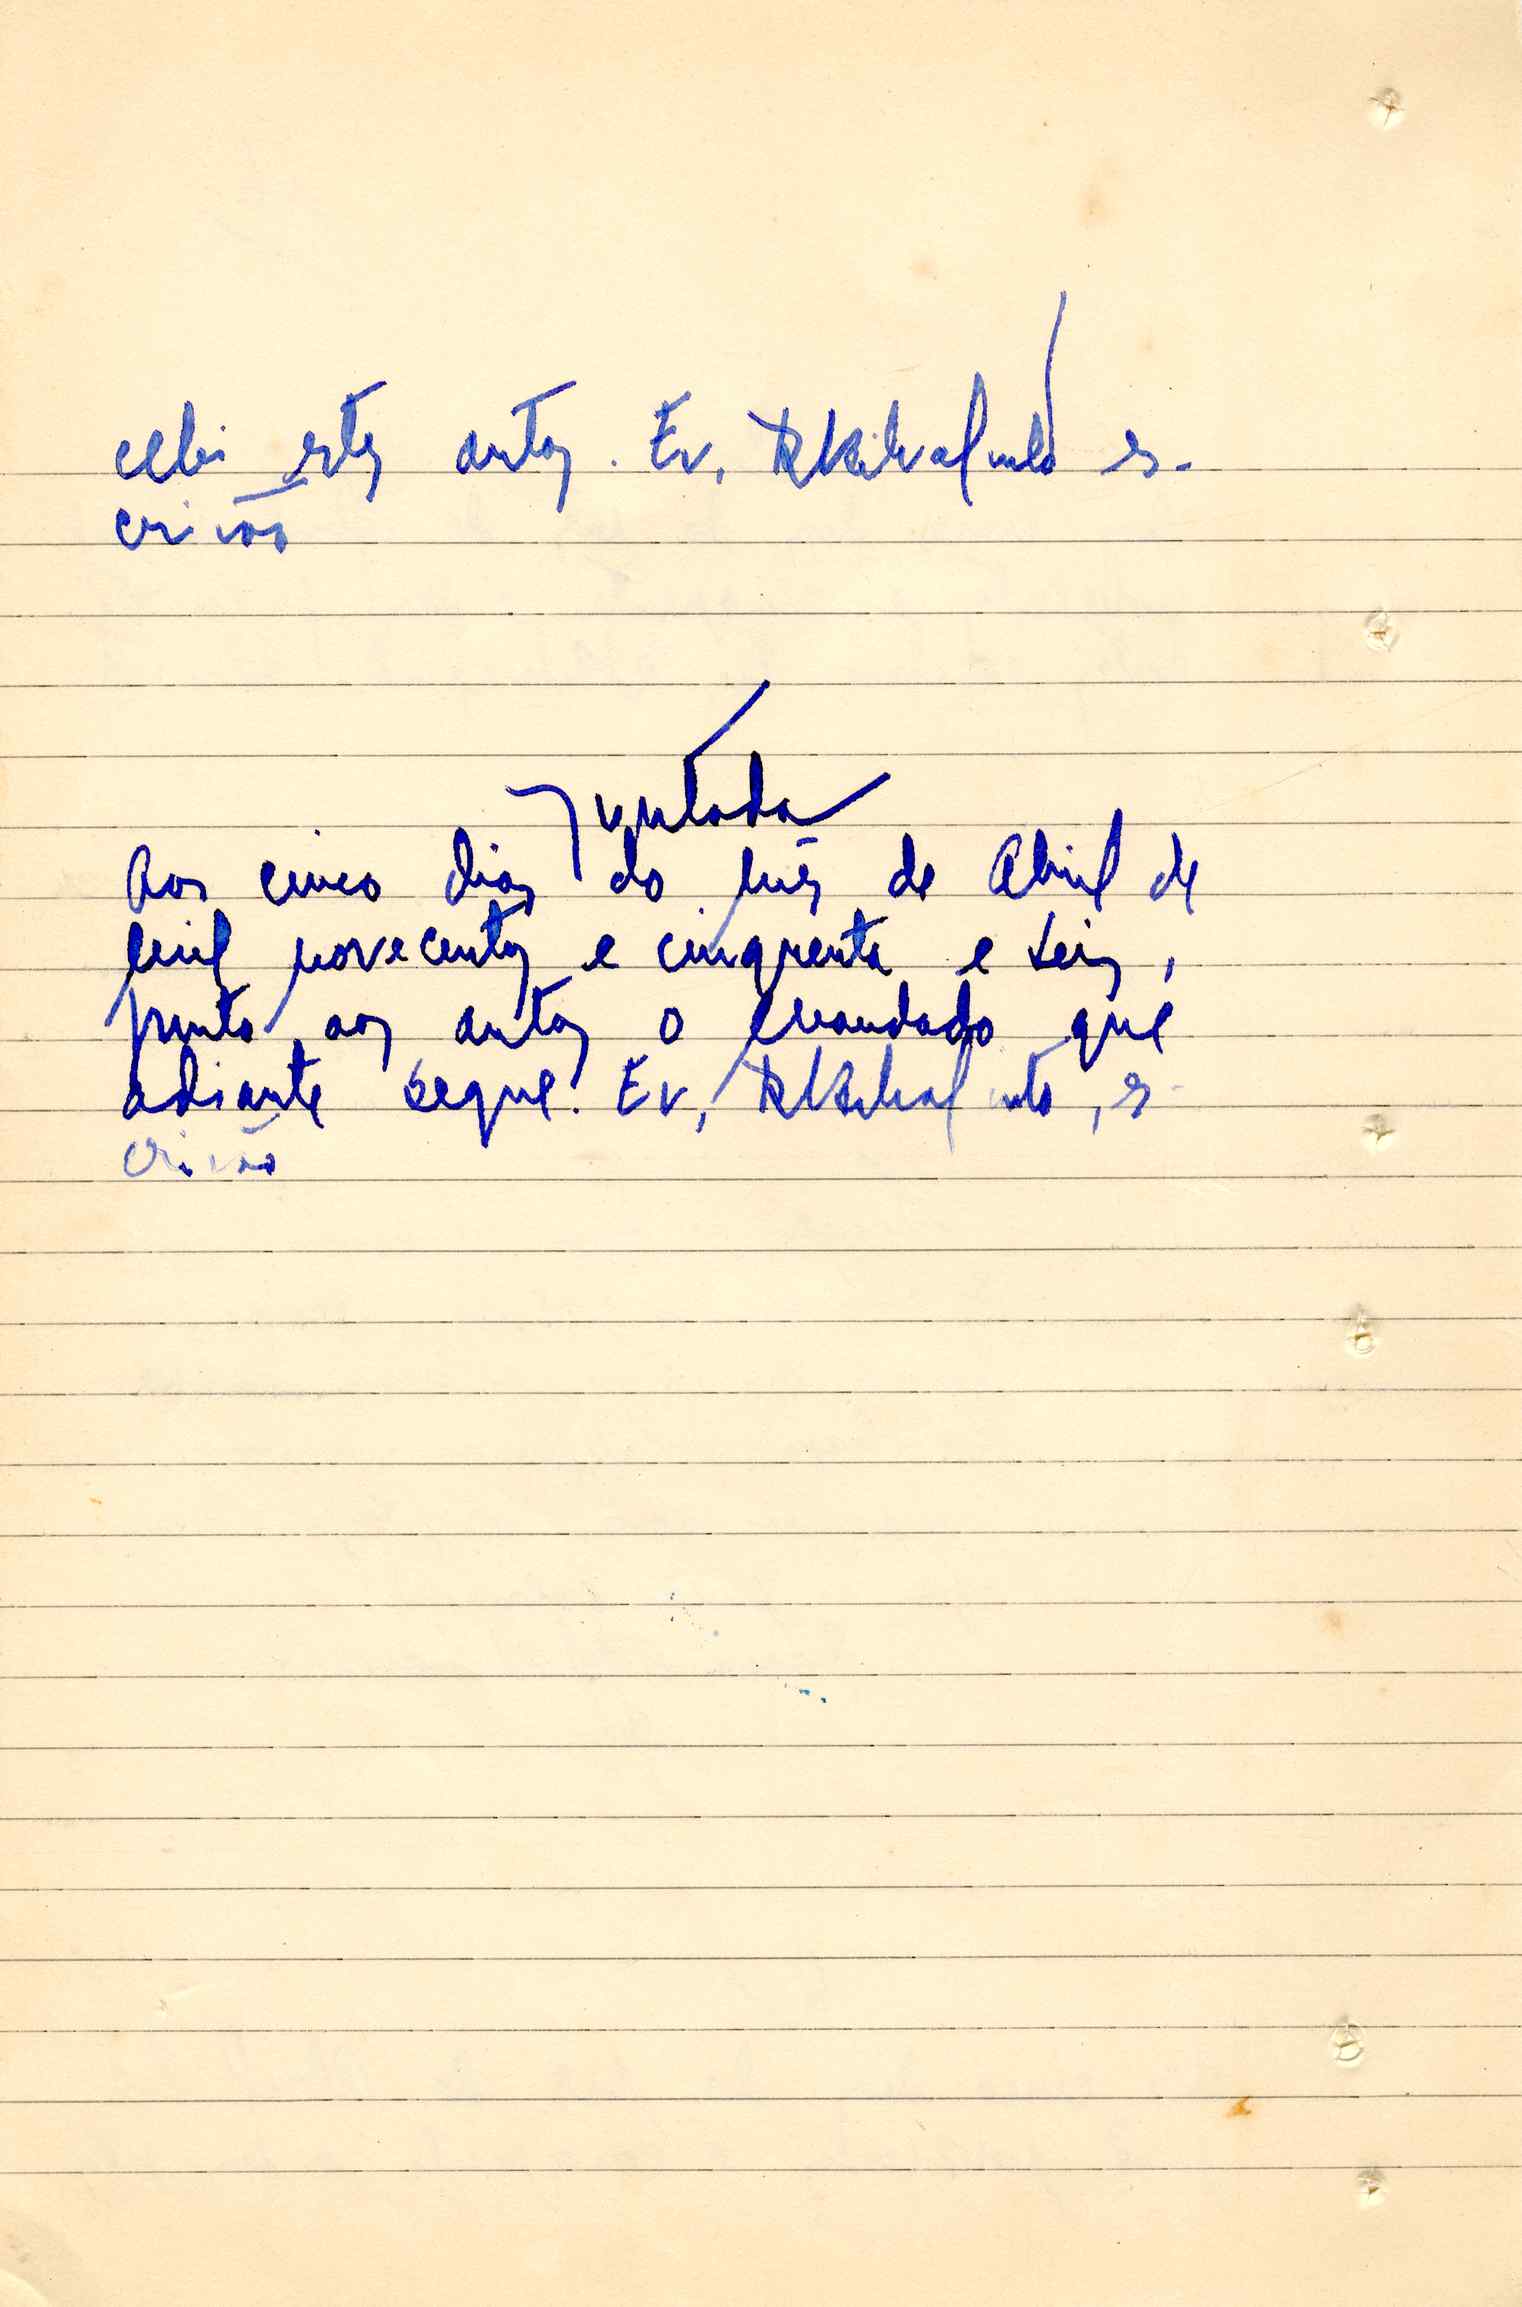 cebi estes autos. Eu, es-
crivão
Juntada
Aos cinco dias do mês de Abril de
mil novecentos e cinquenta e seis,
junto aos autos o mandado que
adiante segue. Eu, es-
crivão